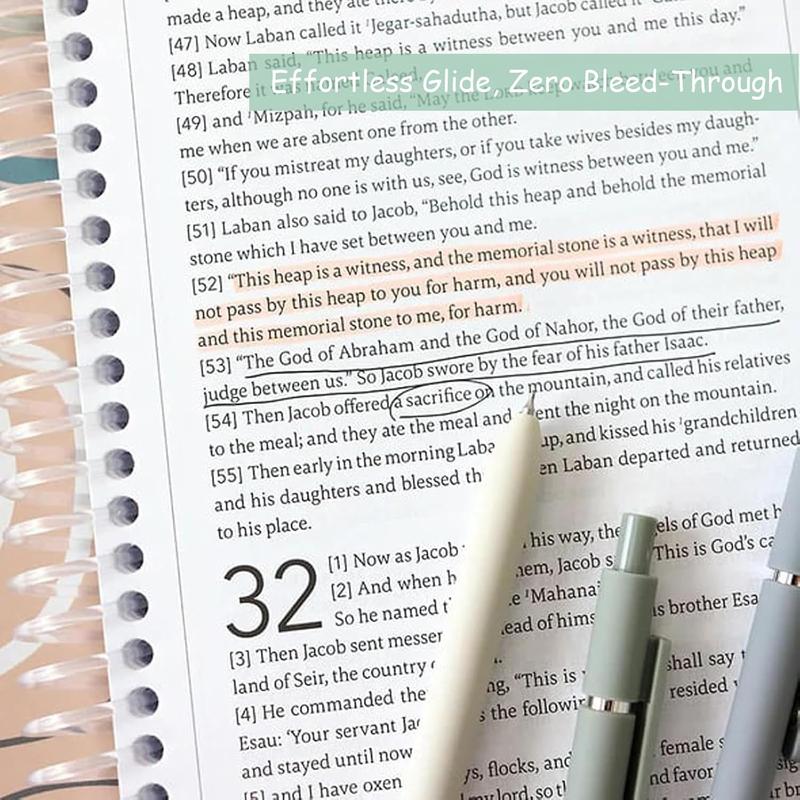 made a heap, and they ate
[47] Now Laban called it ¹Jegar-sahadutha, but Jacob called it
[48] Laban said, “This heap is a witness between you and me this day.”
Effortless Glide, Zero Bleed-Through
Therefore it was named
[49] and ¹Mizpah, for he said, “May the LORD you and
me when we are absent one from the other.
[50] “If you mistreat my daughters, or if you take wives besides my daugh-
ters, although no one is with us, see, God is witness between you and me.”
[51] Laban also said to Jacob, “Behold this heap and behold the memorial
stone which I have set between you and me.
[52] “This heap is a witness, and the memorial stone is a witness, that I will
not pass by this heap to you for harm, and you will not pass by this heap
and this memorial stone to me, for harm.
[53] “The God of Abraham and the God of Nahor, the God of their father,
judge between us.” So Jacob swore by the fear of his father Isaac.
[54] Then Jacob offered a sacrifice on the mountain, and called his relatives
to the meal; and they ate the meal and ent the night on the mountain.
[55] Then early in the morning Laba up, and kissed his ¹grandchildren
and his daughters and blessed th en Laban departed and returned
to his place.
32
[1] Now as Jacob his way, the els of God met h
[2] And when h hem, Jacob s This is God's ca
So he named t e ¹Mahanai
[3] Then Jacob sent messer ead of hims is brother Esa
land of Seir, the country
[4] He commanded the ng, “This is shall say t
Esau: ‘Your servant Jac s the followin resided
and stayed until now
[5] and I have oxen ys, flocks, and female s
my lord, so t nd favor